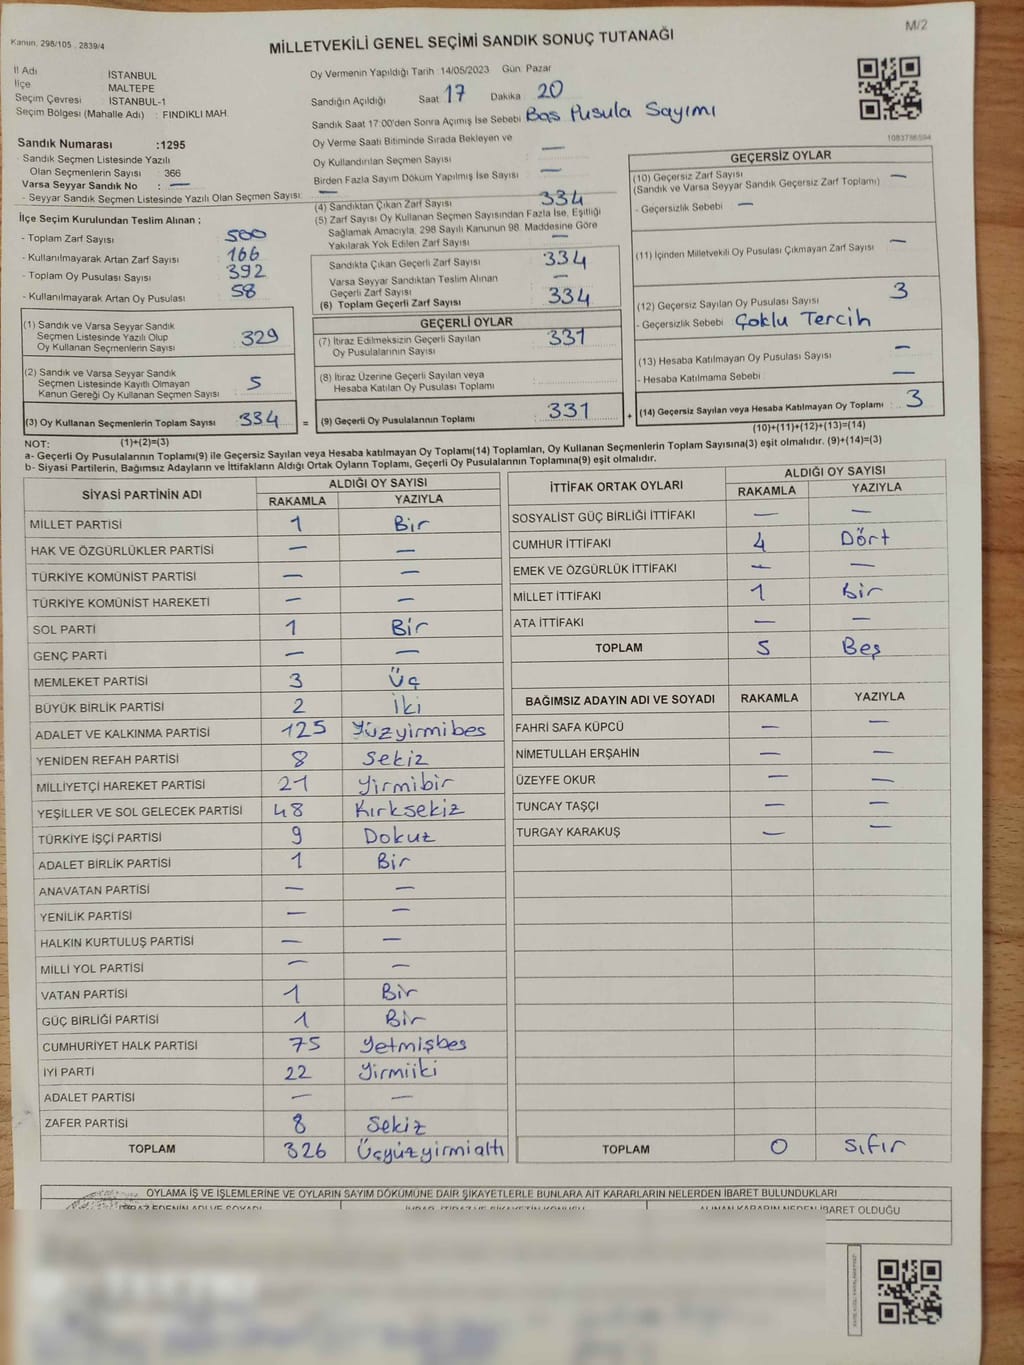 M/2
Kanun, 298/105 , 2839/4
MİLLETVEKİLİ GENEL SEÇİMİ SANDIK SONUÇ TUTANAĞI
İl Adı İSTANBUL
İlçe MALTEPE
Seçim Çevresi : İSTANBUL-1
Seçim Bölgesi (Mahalle Adı) : FINDIKLI MAH.
Sandık Numarası :1295
- Sandık Seçmen Listesinde Yazılı
Olan Seçmenlerin Sayısı : 366
Varsa Seyyar Sandık No : —
- Seyyar Sandık Seçmen Listesinde Yazılı Olan Seçmen Sayısı : —
Oy Vermenin Yapıldığı Tarih :14/05/2023 Gün: Pazar
Sandığın Açıldığı Saat 17 Dakika 20
Sandık Saat 17:00'den Sonra Açımış İse Sebebi Boş Pusula Sayımı
Oy Verme Saati Bitiminde Sırada Bekleyen ve
Oy Kullandırılan Seçmen Sayısı —
Birden Fazla Sayım Döküm Yapılmış İse Sayısı —
İlçe Seçim Kurulundan Teslim Alınan ;
- Toplam Zarf Sayısı 500
- Kullanılmayarak Artan Zarf Sayısı 166
- Toplam Oy Pusulası Sayısı 392
- Kullanılmayarak Artan Oy Pusulası 58
(1) Sandık ve Varsa Seyyar Sandık
Seçmen Listesinde Yazılı Olup
Oy Kullanan Seçmenlerin Sayısı 329
(2) Sandık ve Varsa Seyyar Sandık
Seçmen Listesinde Kayıtlı Olmayan
Kanun Gereği Oy Kullanan Seçmen Sayısı 5
(3) Oy Kullanan Seçmenlerin Toplam Sayısı 334
(4) Sandıktan Çıkan Zarf Sayısı 334
(5) Zarf Sayısı Oy Kullanan Seçmen Sayısından Fazla İse, Eşitliği
Sağlamak Amacıyla, 298 Sayılı Kanunun 98. Maddesine Göre
Yakılarak Yok Edilen Zarf Sayısı —
Sandıkta Çıkan Geçerli Zarf Sayısı 334
Varsa Seyyar Sandıktan Teslim Alınan
Geçerli Zarf Sayısı —
(6) Toplam Geçerli Zarf Sayısı 334
GEÇERLİ OYLAR
(7) İtiraz Edilmeksizin Geçerli Sayılan
Oy Pusulalarının Sayısı 331
(8) İtiraz Üzerine Geçerli Sayılan veya
Hesaba Katılan Oy Pusulası Toplamı
= (9) Geçerli Oy Pusulalarının Toplamı 331
1083786594
GEÇERSİZ OYLAR
(10) Geçersiz Zarf Sayısı
(Sandık ve Varsa Seyyar Sandık Geçersiz Zarf Toplamı) —
- Geçersizlik Sebebi —
(11) İçinden Milletvekili Oy Pusulası Çıkmayan Zarf Sayısı —
(12) Geçersiz Sayılan Oy Pusulası Sayısı 3
- Geçersizlik Sebebi Çoklu Tercih
(13) Hesaba Katılmayan Oy Pusulası Sayısı —
- Hesaba Katılmama Sebebi —
+ (14) Geçersiz Sayılan veya Hesaba Katılmayan Oy Toplamı : 3
(10)+(11)+(12)+(13)=(14)
NOT: (1)+(2)=(3)
a- Geçerli Oy Pusulalarının Toplamı(9) ile Geçersiz Sayılan veya Hesaba katılmayan Oy Toplamı(14) Toplamları, Oy Kullanan Seçmenlerin Toplam Sayısına(3) eşit olmalıdır. (9)+(14)=(3)
b- Siyasi Partilerin, Bağımsız Adayların ve İttifakların Aldığı Ortak Oyların Toplamı, Geçerli Oy Pusulalarının Toplamına(9) eşit olmalıdır.
SİYASİ PARTİNİN ADI ALDIĞI OY SAYISI
RAKAMLA YAZIYLA
MİLLET PARTİSİ 1 Bir
HAK VE ÖZGÜRLÜKLER PARTİSİ — —
TÜRKİYE KOMÜNİST PARTİSİ — —
TÜRKİYE KOMÜNİST HAREKETİ — —
SOL PARTİ 1 Bir
GENÇ PARTİ — —
MEMLEKET PARTİSİ 3 Üç
BÜYÜK BİRLİK PARTİSİ 2 İki
ADALET VE KALKINMA PARTİSİ 125 Yüzyirmibes
YENİDEN REFAH PARTİSİ 8 Sekiz
MİLLİYETÇİ HAREKET PARTİSİ 21 Yirmibir
YEŞİLLER VE SOL GELECEK PARTİSİ 48 Kırksekiz
TÜRKİYE İŞÇİ PARTİSİ 9 Dokuz
ADALET BİRLİK PARTİSİ 1 Bir
ANAVATAN PARTİSİ — —
YENİLİK PARTİSİ — —
HALKIN KURTULUŞ PARTİSİ — —
MİLLİ YOL PARTİSİ — —
VATAN PARTİSİ 1 Bir
GÜÇ BİRLİĞİ PARTİSİ 1 Bir
CUMHURİYET HALK PARTİSİ 75 Yetmişbes
İYİ PARTİ 22 Yirmiiki
ADALET PARTİSİ — —
ZAFER PARTİSİ 8 Sekiz
TOPLAM 326 Üçyüzyirmialtı
İTTİFAK ORTAK OYLARI ALDIĞI OY SAYISI
RAKAMLA YAZIYLA
SOSYALİST GÜÇ BİRLİĞİ İTTİFAKI — —
CUMHUR İTTİFAKI 4 Dört
EMEK VE ÖZGÜRLÜK İTTİFAKI — —
MİLLET İTTİFAKI 1 Bir
ATA İTTİFAKI — —
TOPLAM 5 Beş
BAĞIMSIZ ADAYIN ADI VE SOYADI RAKAMLA YAZIYLA
FAHRİ SAFA KÜPCÜ — —
NİMETULLAH ERŞAHİN — —
ÜZEYFE OKUR — —
TUNCAY TAŞÇI — —
TURGAY KARAKUŞ — —
TOPLAM 0 Sıfır
OYLAMA İŞ VE İŞLEMLERİNE VE OYLARIN SAYIM DÖKÜMÜNE DAİR ŞİKAYETLERLE BUNLARA AİT KARARLARIN NELERDEN İBARET BULUNDUKLARI
İBARET OLDUĞU